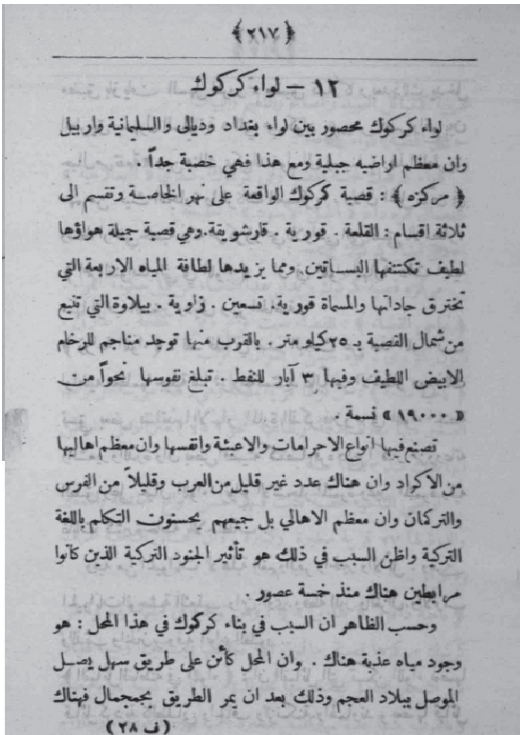 ﴿ ٢١٧ ﴾
١٢ – لواء كركوك
لواء كركوك محصور بين لواء بغداد وديالى والسليمانية واربيل
وان معظم اراضيه جبلية ومع هذا فهي خصبة جداً .
﴿ مركزه ﴾ : قصبة كركوك الواقعة على نهر الخاصة وتقسم الى
ثلاثة اقسام : القلعة . قورية . قارشويقة . وهي قصبة جميلة هواؤها
لطيف تكتنفها البساتين . ومما يزيدها لطافة المياه الاربعة التي
تخترق جاداتها والمسماة قورية . تسعين . زاوية . بيلاوة التي تنبع
من شمال القصبة بـ ٢٥ كيلو متر . بالقرب منها توجد مناجم للرخام
الابيض اللطيف وفيها ٣ آبار للنفط . تبلغ نفوسها نحواً من
« ١٩٠٠٠ » نسمة .
تصنع فيها انواع الاحرامات والاعبئة وانفسها وان معظم اهاليها
من الاكراد وان هناك عدد غير قليل من العرب وقليلاً من الفرس
والتركمان وان معظم الاهالي بل جميعهم يحسنون التكلم باللغة
التركية واظن السبب في ذلك هو تأثير الجنود التركية الذين كانوا
مرابطين هناك منذ خمسة عصور .
وحسب الظاهر ان السبب في بناء كركوك في هذا المحل : هو
وجود مياه عذبة هناك . وان المحل كائن على طريق سهل يصل
الموصل ببلاد العجم وذلك بعد ان يمر الطريق بجمجمال فهناك
( ف ٢٨ )